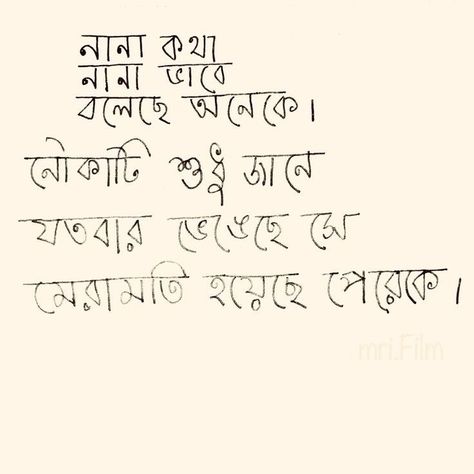 নানা কথা
নানা ভাবে
বলেছে অনেকে।
নৌকাটি শুধু জানে
যতবার ভেঙেছে সে
মেরামতি হয়েছে পেরেকে।
mri.Film